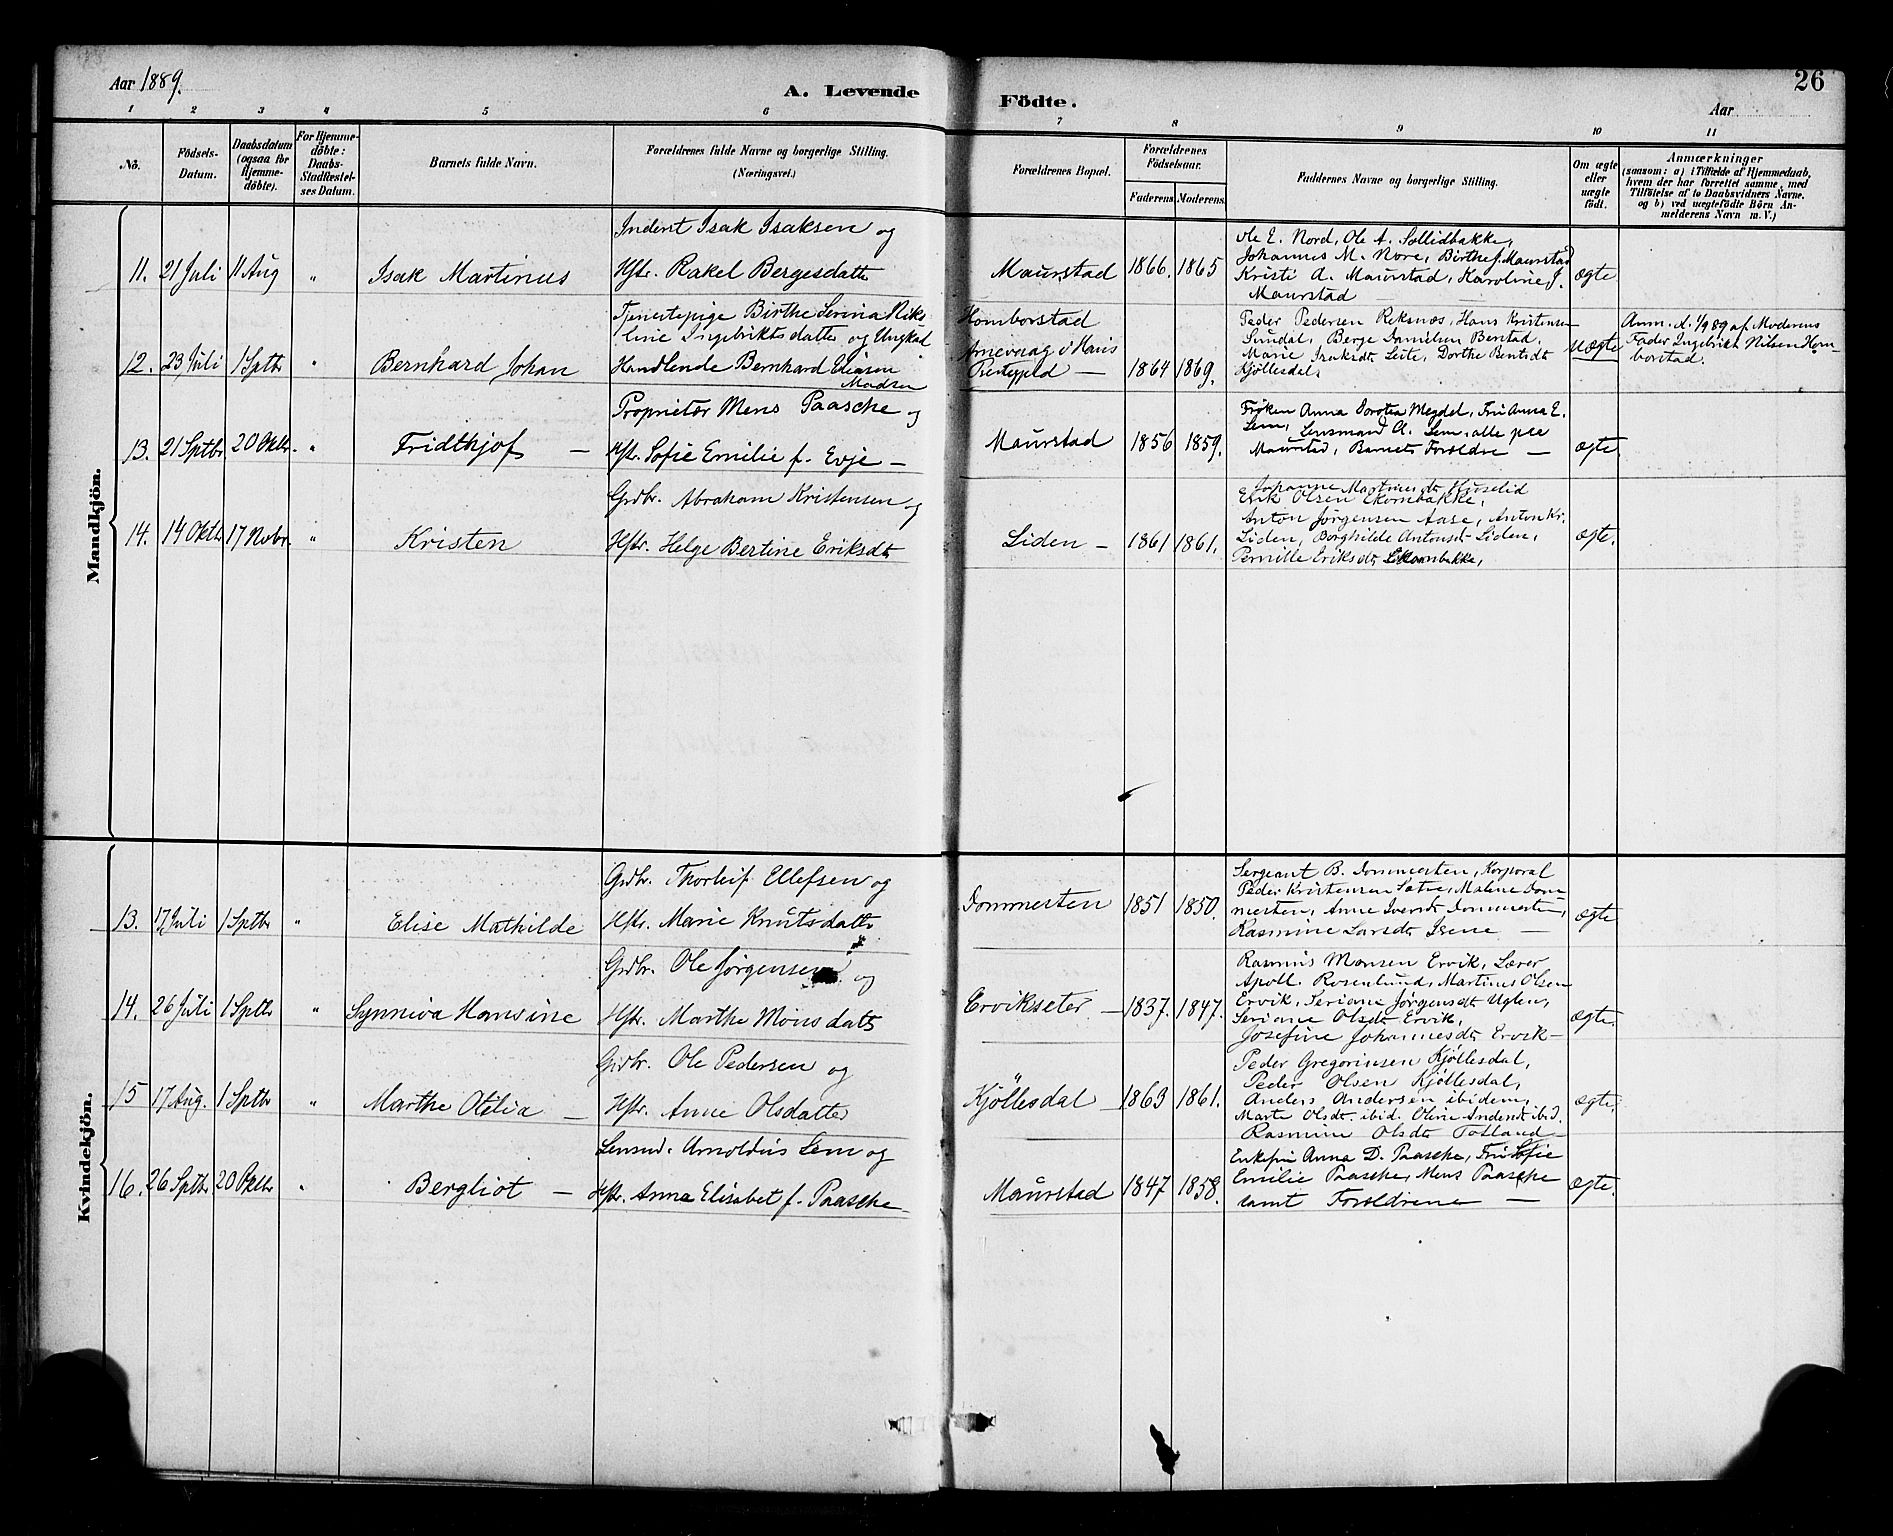 Aar 1889.
A. Levende Födte.
Aar
26
1 2 3 4 5 6 7 8 9 10 11
No.
Födsels-Datum.
Daabsdatum (ogsaa for Hjemme-döbte).
For Hjemme-döbte: Daabs-Stadfæstel-ses Datum.
Barnets fulde Navn.
Forældrenes fulde Navne og borgerlige Stilling.
(Næringsvei.)
Forældrenes Bopæl.
Forældrenes Födselsaar.
Faderens. Moderens.
Faddernes Navne og borgerlige Stilling.
Om ægte eller uægte födt.
Anmærkninger
(saasom: a) i Tilfælde af Hjemmedaab,
hvem der har forrettet samme, med
Tilföielse af to Daabsvidners Navne,
og b) ved uægtefödte Börn An-
melderens Navn m. V.)
Mandkjön.
11. 21 Juli 11 Aug " Isak Martinus
Inderst Isak Isaksen og
Hstr. Rakel Bergesdattr
Maurstad 1866. 1865
Ole E. Nord, Ole A. Sollidbakke,
Johannes M. Nore, Birthe J. Maurstad
Kristi A. Maurstad, Karoline J.
Maurstad
ægte
12. 23 Juli 1 Sptbr " Bernhard Johan
Tjenestepige Birthe Serina Nik-
line Ingebriktsdatter og Ungkarl
Handlende Bernhard Eliasen
Madsen
Homborstad
Arnevaag i Havis
Prestegjeld — 1864 1869.
Peder Pedersen Reksnæs, Hans Kristensen
Sundal, Berge Danielsen Berstad,
Marie Isaksdt Leite, Dorthe Berntsdt
Kjöllesdal
uægte
Anm. d. 1/9 89 af Moderens
Fader Ingebrikt Nilsen Hom-
borstad.
13. 21 Sptbr 20 Oktbr. " Fridtkjof —
Proprietær Mens Paasche og
Hstr. Sofie Emilie f. Evje —
Maurstad 1856 1859.
Frøken Anna Dorotea Megdel, Fru Anna E.
Sem, Lensmand A. Sem, alle paa
Maurstad, Barnets Forældre —
ægte
14. 14 Oktbr 17 Novbr. " Kristen
Grdbr. Abraham Kristensen og
Hstr. Helge Bertine Eriksdt
Liden — 1861 1861.
Johanne Martinusdt Huselid
Erik Olsen Ekornbakke,
Anton Jørgensen Aase, Anton Kr.
Liden, Borghilde Antonsdt Liden,
Pernille Eriksdt Ekornbakke,
ægte.
Kvindekjön.
13. 17 Juli 1 Sptbr " Elise Mathilde
Grdbr. Thorleif Ellefsen og
Hstr. Marie Knutsdattr
Dommesten 1851 1850.
Sergeant B. Dommesten, Korporal
Peder Kristensen Sætre, Malene Dom-
mesten, Anne Iversdt Dommesten,
Rasmine Larsdt Isene —
ægte
14. 26 Juli 1 Sptbr " Synneva Hansine
Grdbr. Ole Jørgensen og
Hstr. Marthe Monsdattr
Ervikseter — 1837. 1847.
Rasmus Monsen Ervik, Lærer
Apoll. Rosenlund, Martinus Olsen
Ervik, Seriane Jørgensdt Uglen,
Seriane Olsdt Ervik,
Josefine Johannesdt Ervik —
ægte.
15 17 Aug. 1 Sptbr " Marthe Otelia —
Grdbr. Ole Pedersen og
Hstr. Anne Olsdatter
Kjöllesdal — 1863 1861.
Peder Gregoriusen Kjöllesdal,
Peder Olsen Kjöllesdal,
Anders Andersen ibidem,
Marte Olsdt. ibid. Oline Andersdt ibid.
Rasmine Olsdt Totland
ægte.
16. 26 Sptbr 20 Oktbr " Bergliot —
Lensmd. Arnoldus Sem og
Hstr. Anna Elisabet f. Paasche
Maurstad 1847 1858.
Enkefru Anna D. Paasche, Fru Sofie
Emilie Paasche, Mens Paasche
samt Forældrene —
ægte.